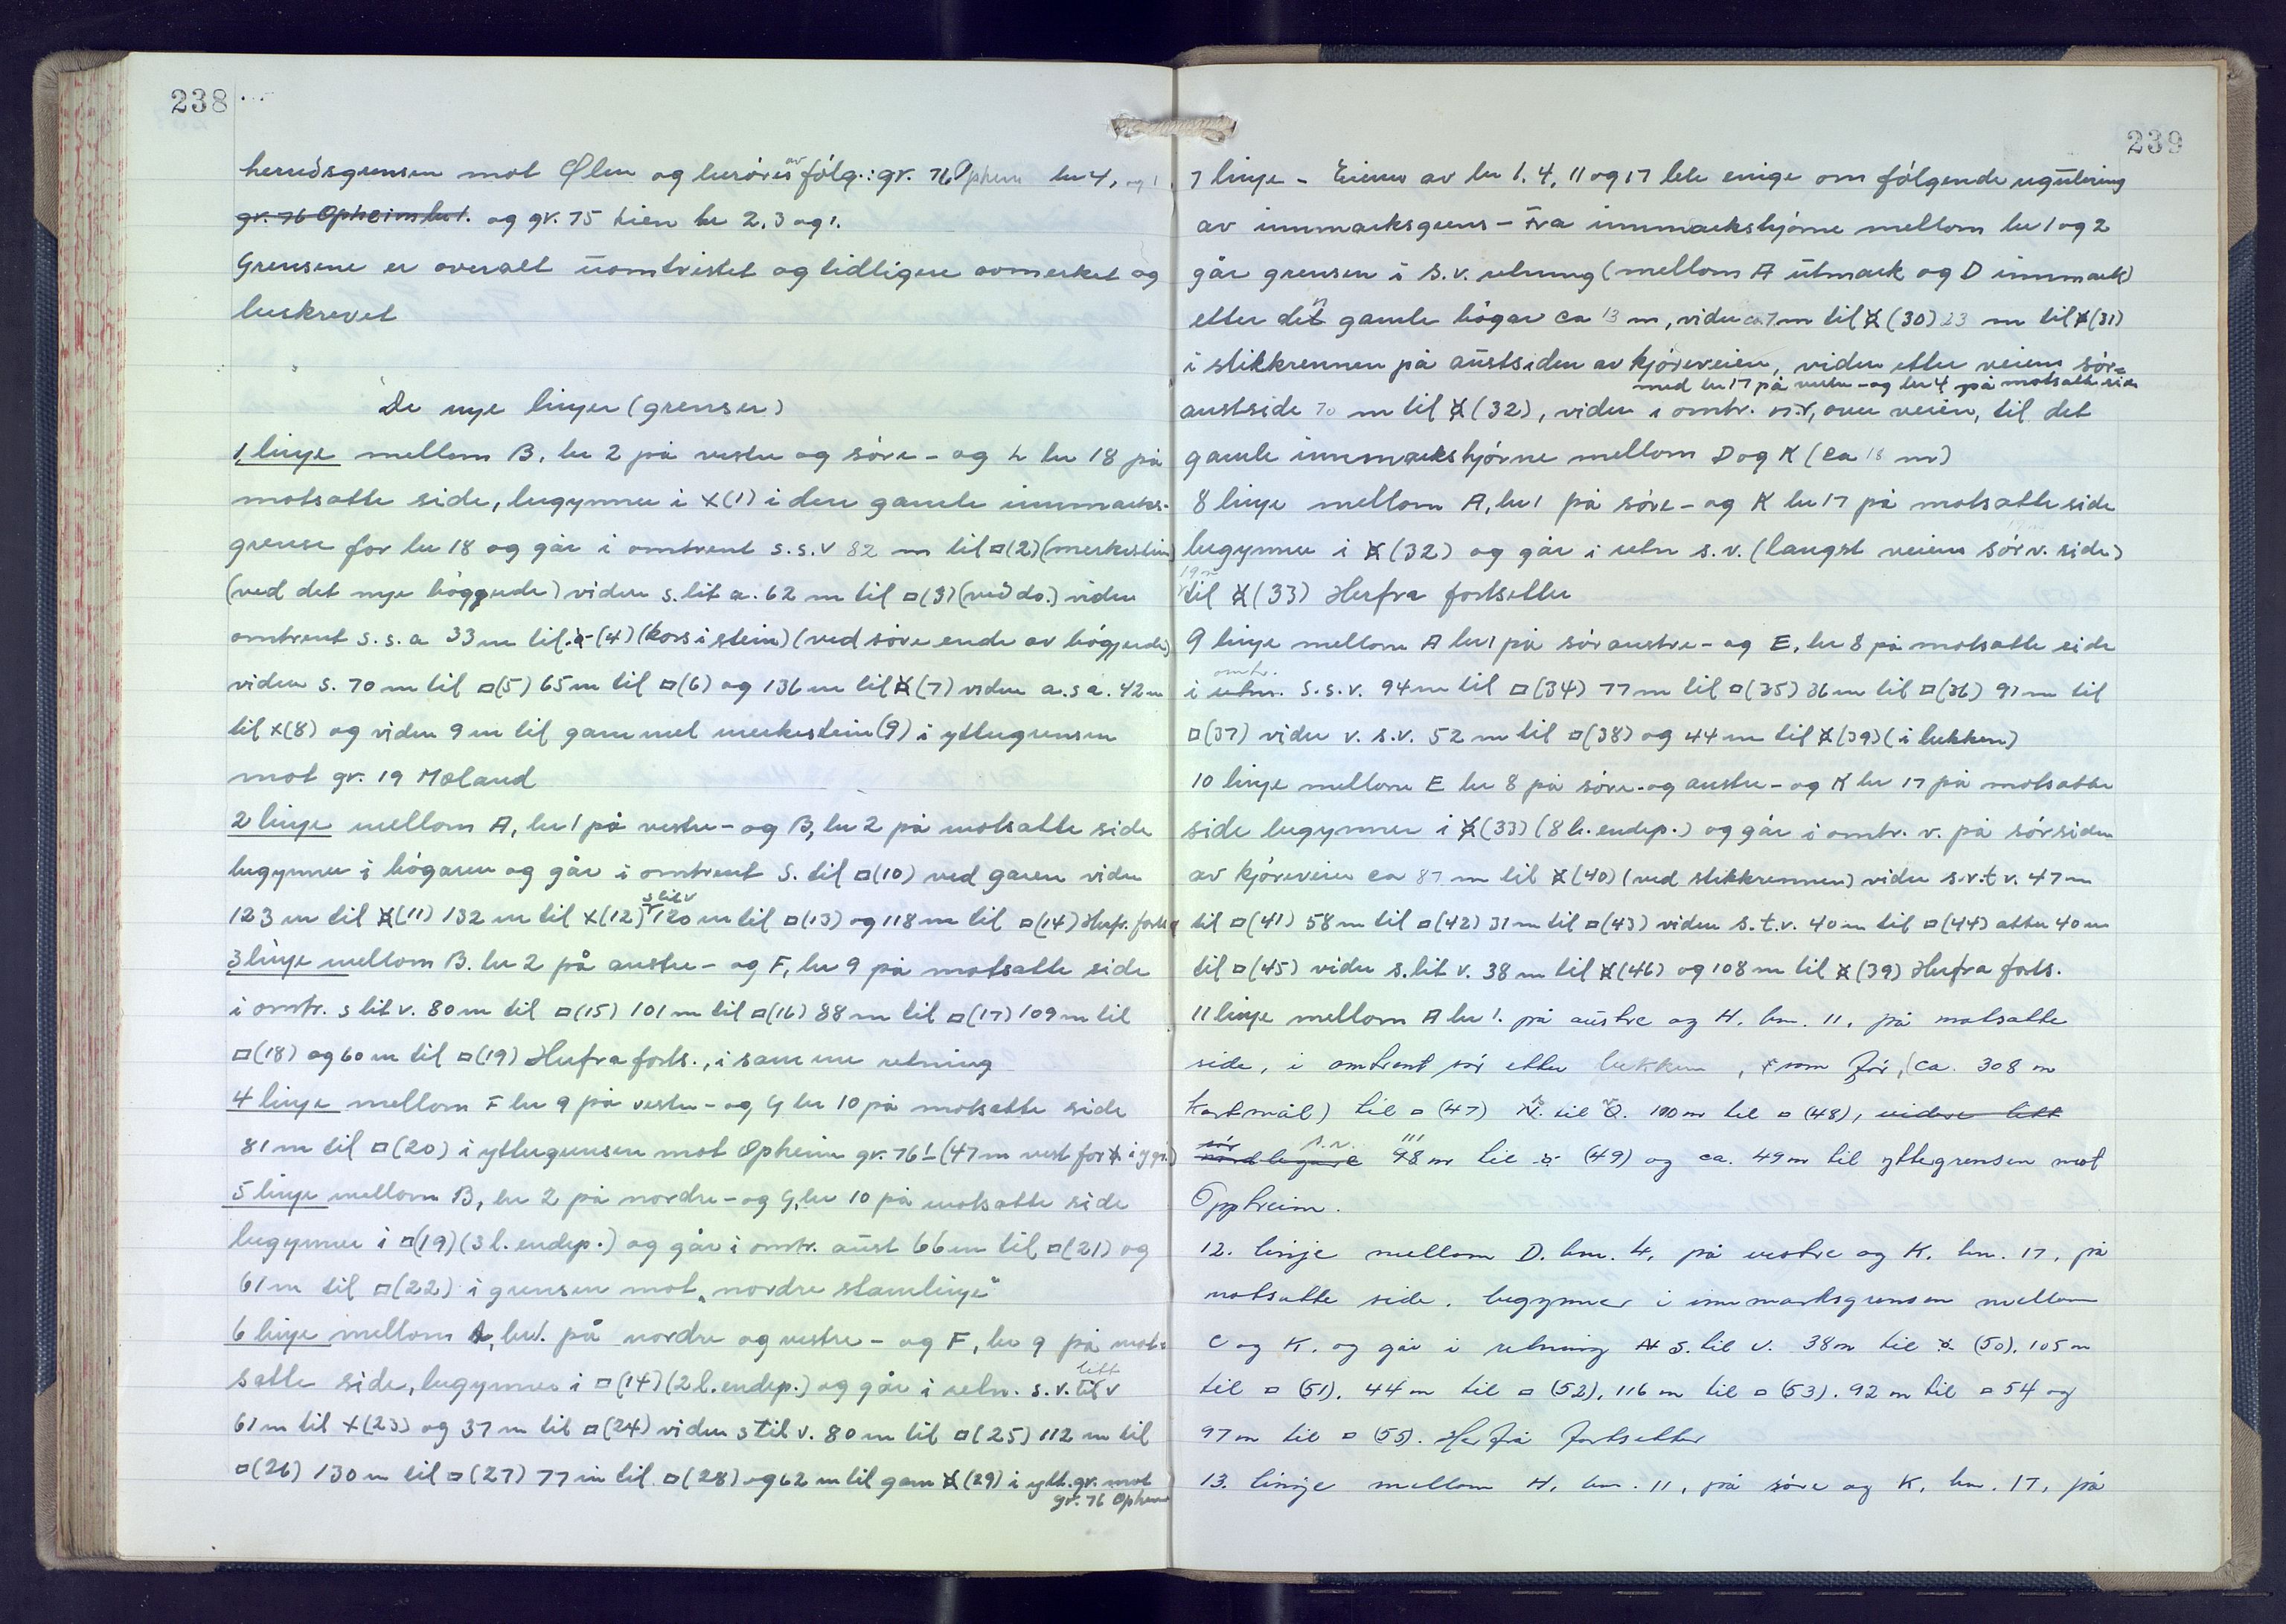 238
herredsgrensen mot Ølen og berøres av følg.: gr. 76 Opheim br 4, og 1
gr. 76 Opheim br 1. og gr. 75 Lien br 2, 3 og 1.
Grensene er overalt uomtvistet og tidligere avmerket og
beskrevet
De nye linjer (grenser)
1 linje mellom B, br 2 på vestre og søre - og L br 18 på
motsatte side, begynner i x(1) i den gamle innmarks-
grense for br 18 og går i omtrent s.s.v 82 m til □(2) (merkestein)
(ved det nye høggjerde) videre s. lit a. 62 m til □(3) (ved do.) videre
omtrent s.s.a 33 m til (4) (kors i stein) (ved søre ende av høgjerde)
videre s. 70 m til □(5) 65 m til □(6) og 136 m til ¤(7) videre a.s a. 42 m
til x(8) og videre 9 m til gammel merkestein (9) i yttergrensen
mot gr. 19 Mæland
2 linje mellom A, br 1 på vestre - og B, br 2 på motsatte side
begynner i høgaren og går i omtrent S. til □(10) ved garen videre
123 m til ¤(11) 132 m til x(12) s lit v 120 m til □(13) og 118 m til □(14) Herfr. forts
3 linje mellom B. br 2 på austre - og F, br 9 på motsatte side
i omtr. s lit v. 80 m til □(15) 101 m til □(16) 88 m til □(17) 109 m til
□(18) og 60 m til □(19) Herfra forts., i samme retning
4 linje mellom F br 9 på vestre - og G br 10 på motsatte side
81 m til □(20) i yttergrensen mot Opheim gr. 76 1 (47 m vest for ¤ i ygr.)
5 linje mellom B, br 2 på nordre - og G, br 10 på motsatte side
begynner i □(19) (3 l. endep.) og går i omtr. aust 66 m til □(21) og
61 m til □(22) i grensen mot „nordre stamlinje"
6 linje mellom A, br 1. på nordre og vestre - og F, br 9 på mot=
satte side, begynner i □(14) (2 l. endep.) og går i retn. s.v. litt til v
61 m til x(23) og 37 m til □(24) videre s til v. 80 m til □(25) 112 m til
□(26) 130 m til □(27) 77 m til □(28) og 62 m til gam ¤(29) i ytt.gr. mot
gr. 76 Opheim
239
7 linje - Eierne av br 1, 4, 11 og 17 ble enige om følgende regulering
av innmarksgrens - Fra innmarkshjørne mellom br 1 og 2
går grensen i s.v. retning (mellom A utmark og D innmark)
etter den gamle høgar ca 13 m, videre ca 7 m til ¤(30) 23 m til ¤(31)
i stikkrennen på austsiden av kjøreveien, videre etter veiens sør=
med br 17 på vestre - og br 4 på motsatte side
austside 70 m til ¤(32), videre i omtr. n.v, over veien, til det
gamle innmarkshjørne mellom D og K (ca 18 m)
8 linje mellom A, br 1 på søre - og K br 17 på motsatte side
begynner i ¤(32) og går i retn s.v. (langst veiens sør v. side)
19 m
til ¤(33) Herfra fortsetter
9 linje mellom A br 1 på sør austre - og E, br 8 på motsatte side
i omtr. retn. S.s.v. 94 m til □(34) 77 m til □(35) 36 m til □(36) 97 m til
□(37) videre v. s.v. 52 m til □(38) og 44 m til ¤(39) (i bekken)
10 linje mellom E br 8 på søre - og austre - og K br 17 på motsatte
side begynner i ¤(33) (8 l. endep.) og går i omtr. v. på sørsiden
av kjøreveien ca 87 m til ¤(40) (ved stikkrennen) videre s.v.t v. 47 m
til □(41) 58 m til □(42) 31 m til □(43) videre s.t.v. 40 m til □(44) atter 40 m
til □(45) videre s. lit v. 38 m til ¤(46) og 108 m til ¤(39) Herfra forts.
11 linje mellom A br 1. på austre og H. bn. 11. på motsatte
side, i omtrent sør etter bekken, som før, (ca. 308 m
kartmål) til □(47) til 100 m til □(48), videre litt
sør nordlegare s.v. 111 98 m til (49) og ca. 49 m til yttergrensen mot
Oppheim.
12. linje mellom D. bn. 4, på vestre og K. bn. 17, på
motsatte side. begynner i innmarksgrensen mellom
C og K. og går i retning S. til v. 38 m til ¤ (50), 105 m
til □ (51), 44 m til □ (52), 116 m til □ (53). 92 m til □ 54 og
97 m til □ (55). Herfrå fortsetter
13. linje mellom H, bn. 11, på søre og K, bn. 17, på